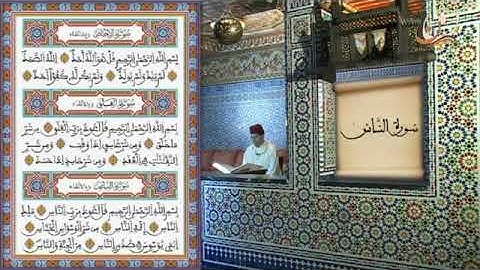 سورة الإخلاص
بسم الله الرحمن الرحيم قل هو الله أحد الله الصمد
لم يلد ولم يولد ولم يكن له كفؤا أحد
سورة الفلق
بسم الله الرحمن الرحيم قل أعوذ برب الفلق من شر
ما خلق ومن شر غاسق إذا وقب ومن شر
النفاثات في العقد ومن شر حاسد إذا حسد
سورة الناس
بسم الله الرحمن الرحيم قل أعوذ برب الناس ملك
الناس إله الناس من شر الوسواس الخناس
الذي يوسوس في صدور الناس من الجنة والناس
سورة الناس